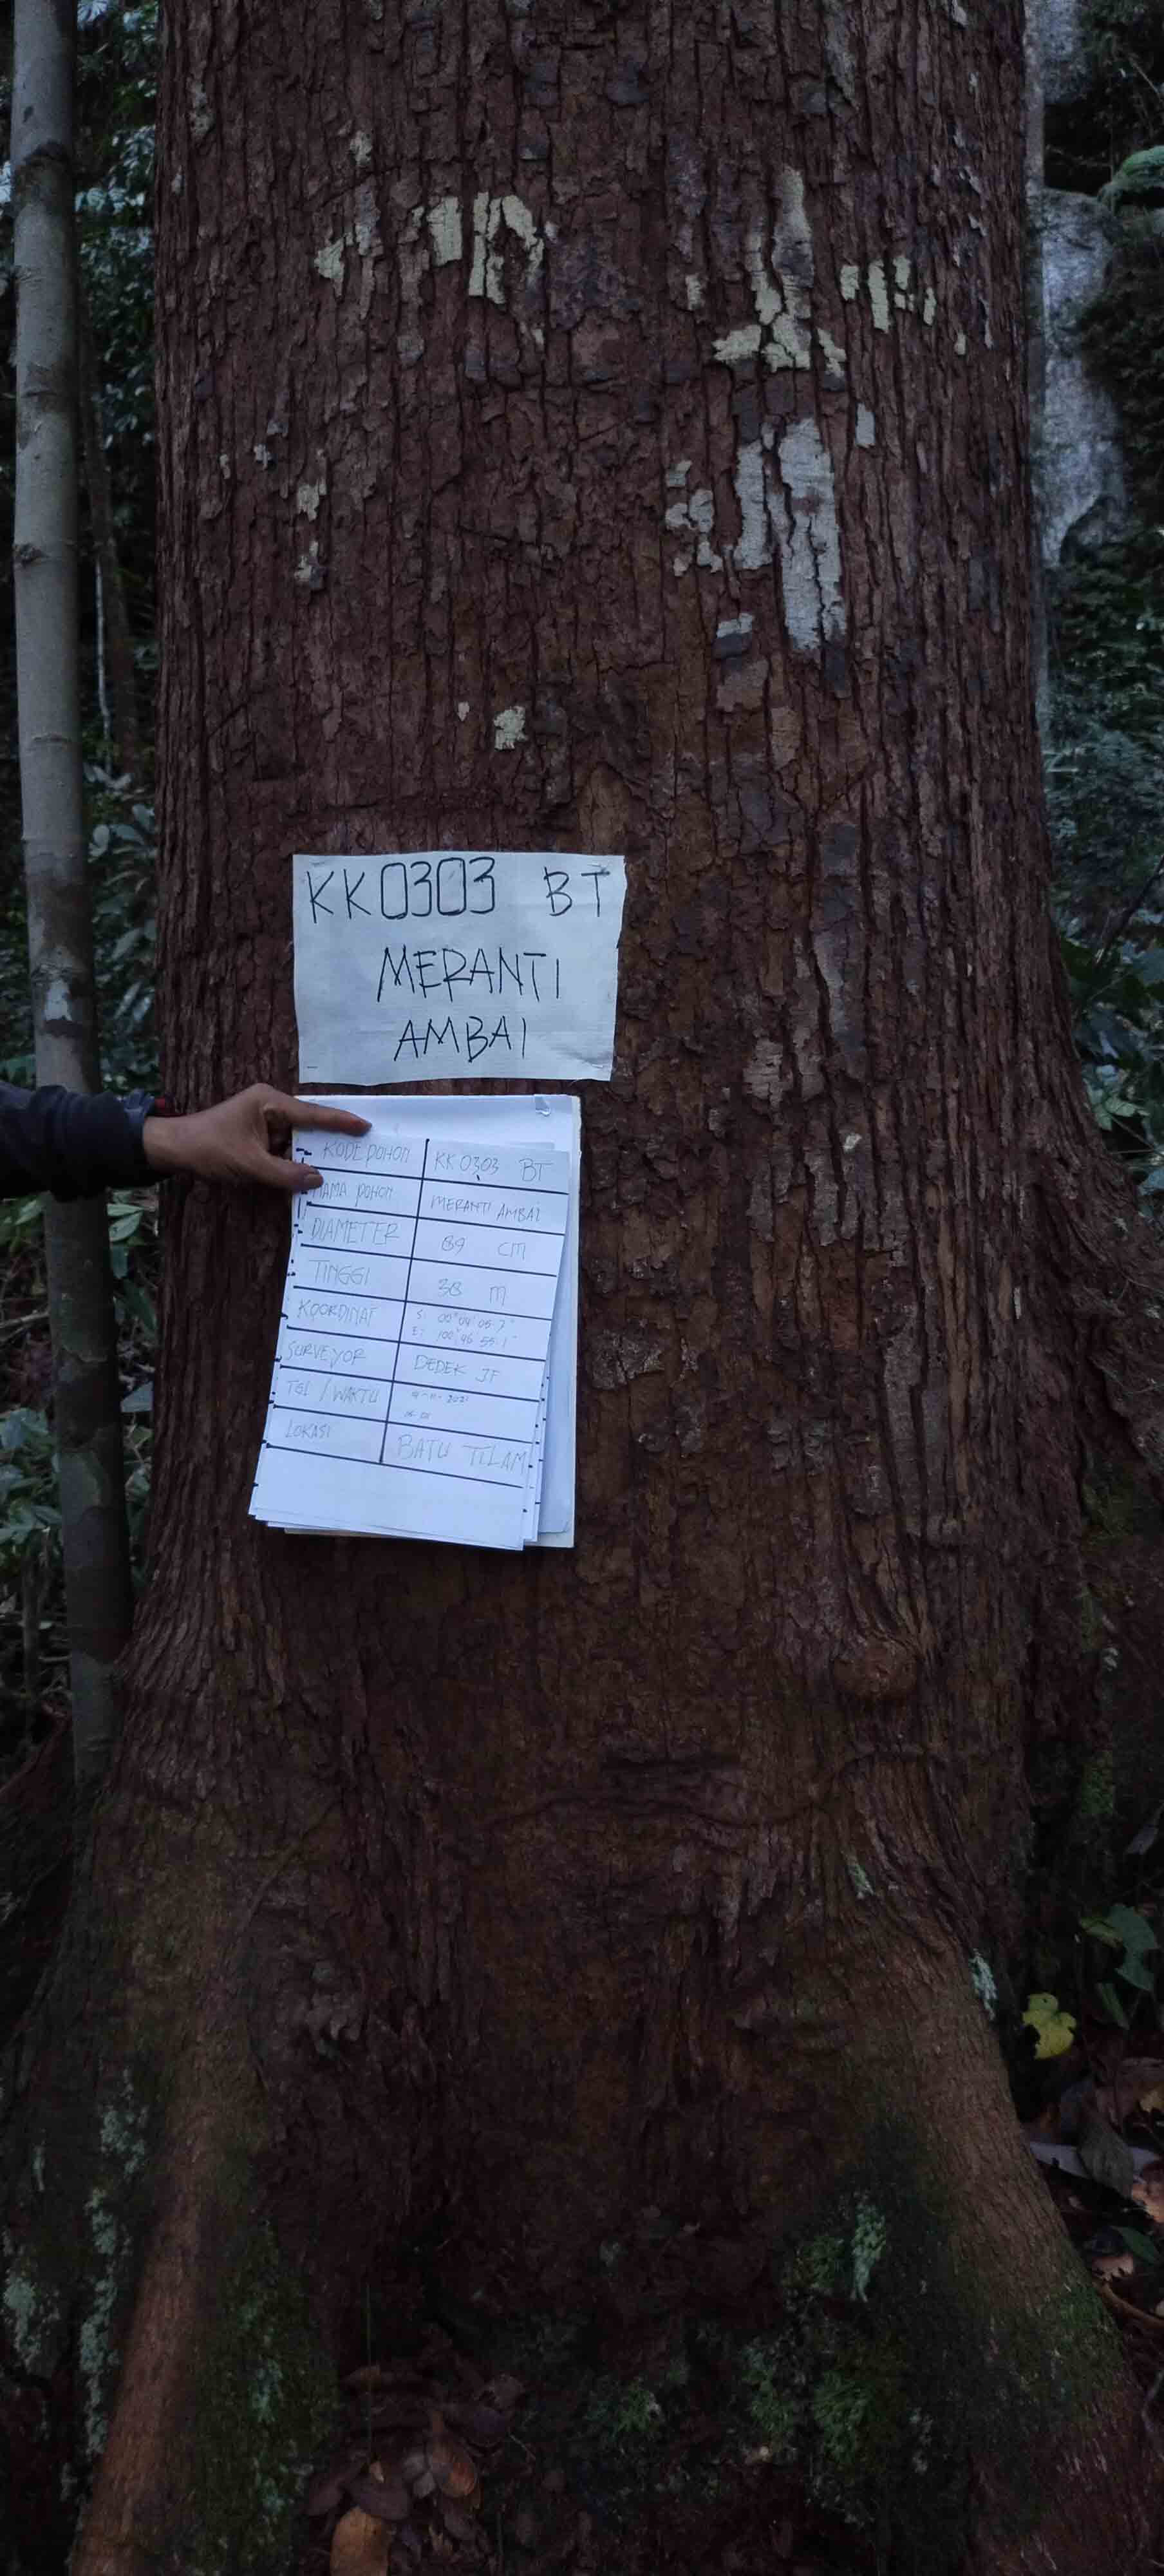 KK0303 BT
MERANTI
AMBAI
KODE POHON KK 0303 BT
NAMA POHON MERANTI AMBAI
DIAMETER 89 CM
TINGGI 38 M
KOORDINAT S: 00° 04' 05.7"
E: 100° 46' 55.1"
SURVEYOR DEDEK JF
TGL / WAKTU
LOKASI BATU TILAM